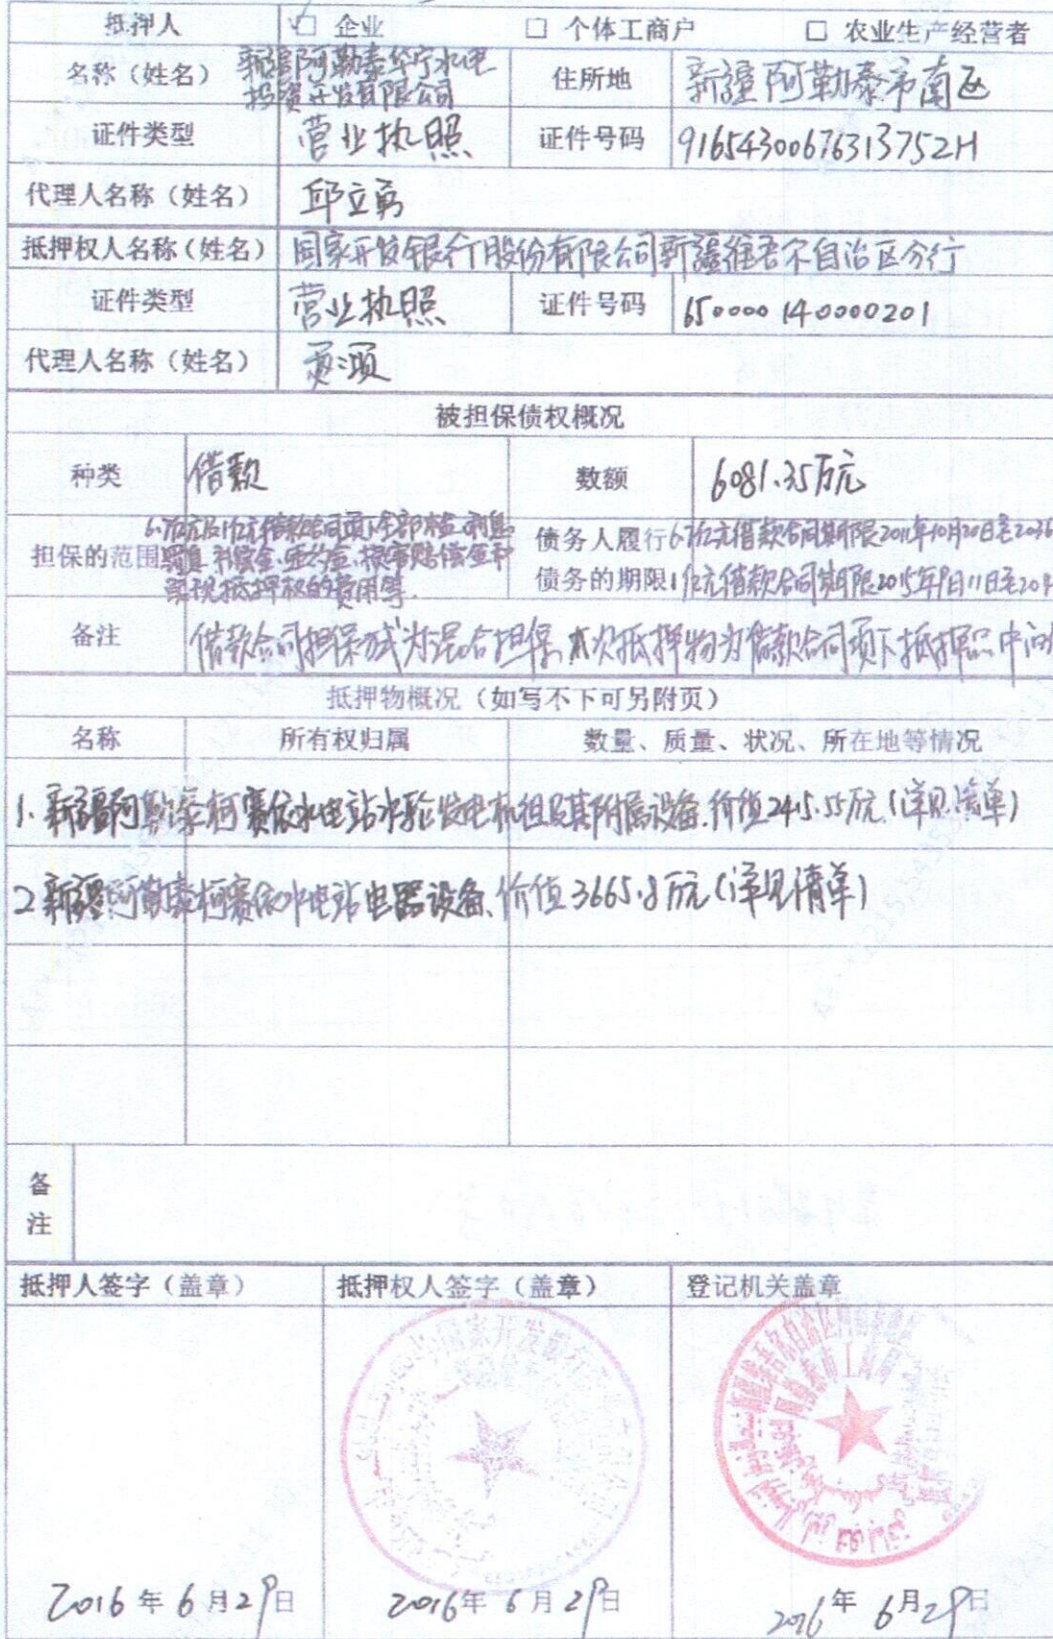 抵押人 ☑ 企业 □ 个体工商户 □ 农业生产经营者
名称（姓名） 新疆阿勒泰华宁水电投资开发有限公司 住所地 新疆阿勒泰市南区
证件类型 营业执照 证件号码 91654300676313752H
代理人名称（姓名） 邱立勇
抵押权人名称（姓名） 国家开发银行股份有限公司新疆维吾尔自治区分行
证件类型 营业执照 证件号码 650000140000201
代理人名称（姓名）
被担保债权概况
种类 借款 数额 6081.35万元
担保的范围 6.7亿元及1亿元借款合同项下全部本金、利息
罚息、补偿金、违约金、损害赔偿金和
实现抵押权的费用等.
债务人履行 6.7亿元借款合同期限2011年10月20日至
债务的期限 1亿元借款合同期限2015年9月11日至
备注 借款合同担保方式为混合担保 本次抵押物为借款合同项下抵押品中
抵押物概况（如写不下可另附页）
名称 所有权归属 数量、质量、状况、所在地等情况
1. 新疆阿勒泰柯赛依水电站水轮发电机组及其附属设备.价值2415.55万元.(详见清单)
2 新疆阿勒泰柯赛依水电站电器设备、价值3665.8万元(详见清单)
备注
抵押人签字（盖章） 抵押权人签字（盖章） 登记机关盖章
国家开发银行
2016年6月29日 2016年6月29日 2016年6月29日